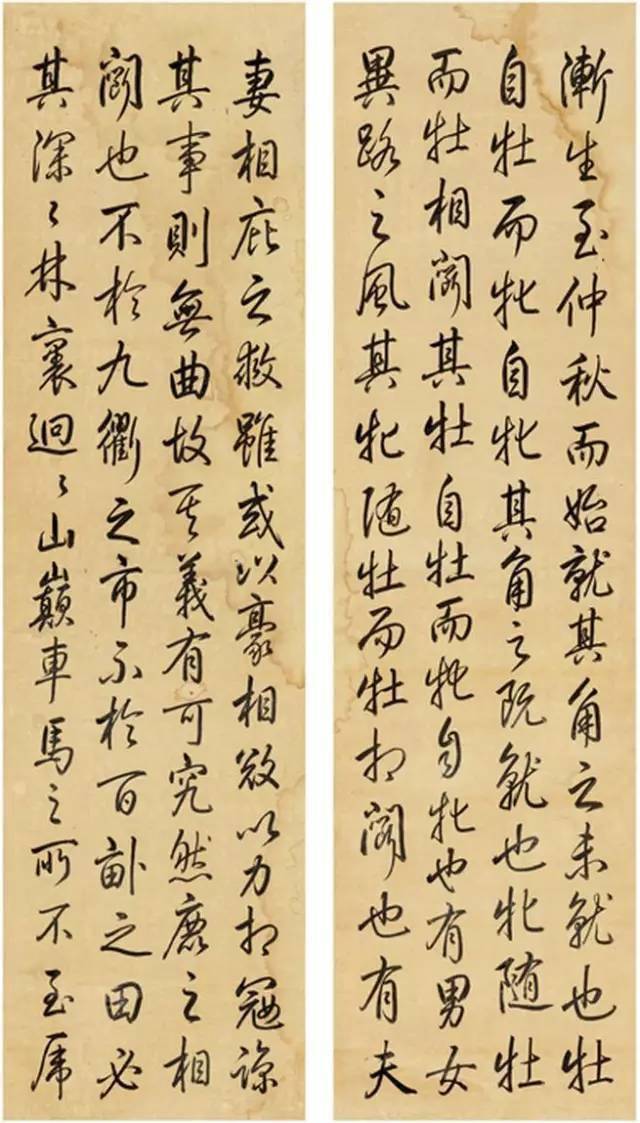 漸生至仲秋而始就其角之未就也牡
自牡而牝自牝其角之既就也牝隨牡
而牡相鬭其牡自牡而牝自牝也有男女
異路之風其牝随牡而牡相鬭也有夫
妻相庇之救雖或以豪相敚以力相寇諒
其事則無曲故其義有可究然鹿之相
鬭也不於九衢之市不於百畝之田必
其深〻林裏迥〻山巔車馬之所不至席